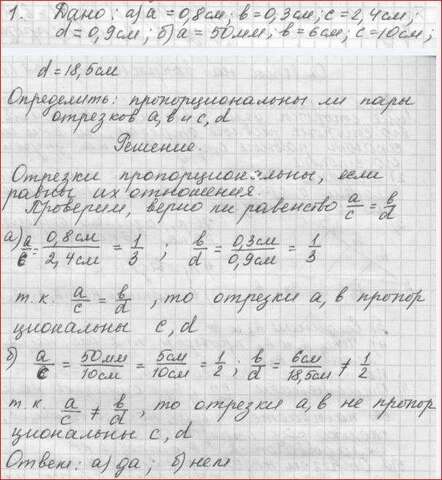 1. Дано: а) а = 0,8см, в = 0,3см, с = 2,4см;
d = 0,9см; б) а = 50мм, в = 6см, с = 10см,
d = 18,5см
Определить: пропорциональны ли пары
отрезков а, в и с, d
Решение.
Отрезки пропорциональны, если
равны их отношения.
Проверим, верно ли равенство а/с = в/d
а) а/с = 0,8см/2,4см = 1/3 ; в/d = 0,3см/0,9см = 1/3
т.к. а/с = в/d , то отрезки а, в пропор
циональны с, d
б) а/с = 50мм/10см = 5см/10см = 1/2 ; в/d = 6см/18,5см ≠ 1/2
т.к. а/с ≠ в/d , то отрезки а, в не пропор
циональны с, d
Ответ: а) да; б) нет